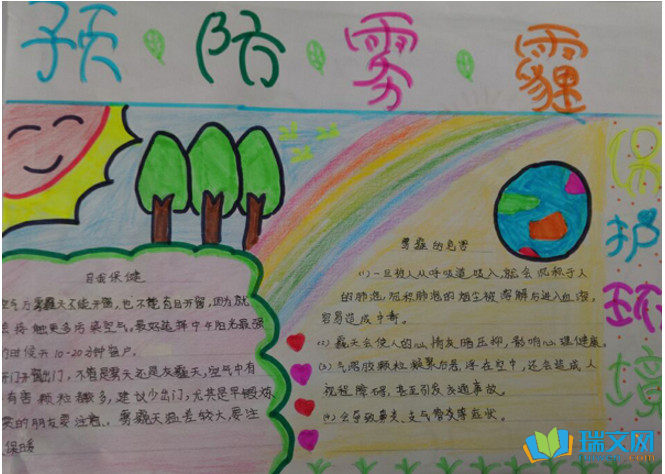 预防雾霾
保护环境
自我保健
空气污雾霾天不能开窗,也不能盲目开窗,因为就
会接触更多污染空气,最好选择中午阳光最强
的时候开10-20分钟窗户。
开门开窗出门,不管是雾天还是灰霾天,空气中有
有害颗粒都多,建议少出门,尤其是早锻炼
的朋友要注意。雾霾天温差较大要注
保暖
雾霾的危害
(1)一旦被人从呼吸道吸入,就会沉积于人
的肺泡,沉积肺泡的烟尘被溶解后进入血液,
容易造成中毒。
(2)霾天会使人的心情灰暗压抑,影响心理健康。
(3)气溶胶颗粒凝聚后悬浮在空中,还会造成人
视程障碍,甚至引发交通事故。
(4)会导致鼻炎、支气管炎等症状。
瑞文网